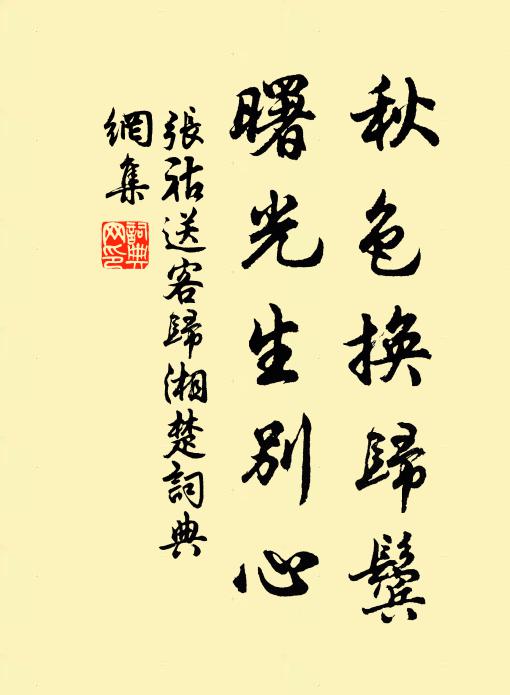 秋色換歸鬢
曙光生別心
張祜送客歸湘楚詞典
網集
詞典
网印